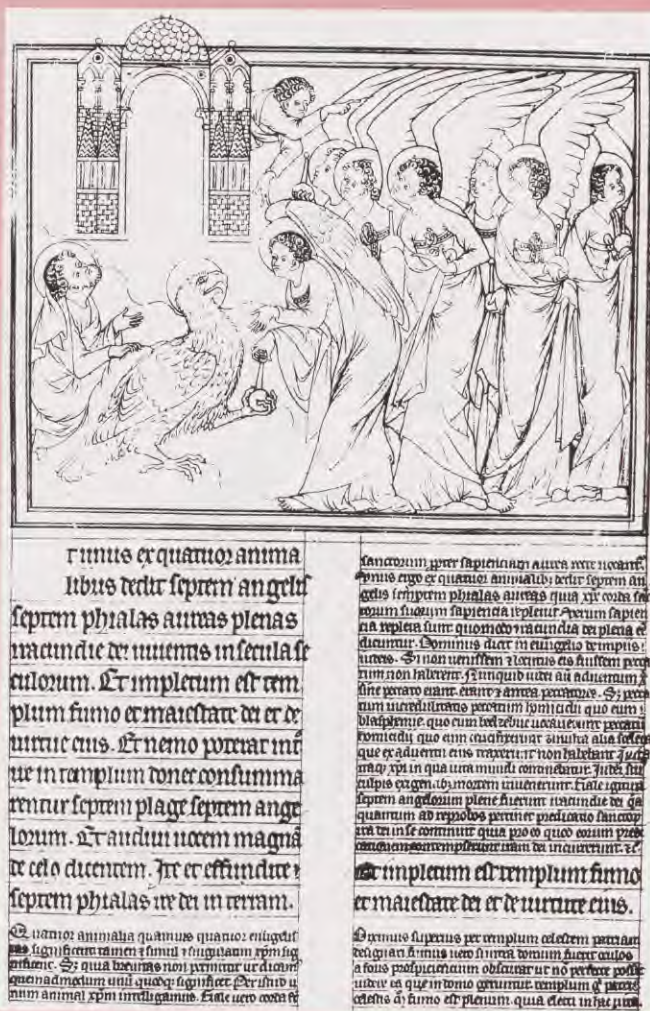 t unus ex quatuor anima
libus dedit septem angelis
septem phialas aureas plenas
iracundie dei uiuentis in secula se
culorum. Et impletum est tem
plum fumo et maiestate dei et de
uirtute eius. Et nemo poterat int
re in templum donec consumma
rentur septem plage septem ange
lorum. Et audiui uocem magnā
de celo dicentem. Ite et effundite
septem phialas ire dei in terram.
Quatuor animalia quamuis quatuor
significent tamen simul singulatim xpm sig
nificent. Sꝫ quia breuitas non permittit ut dicam
quemadmodum unū quodqꝫ significet
num animal xpm intelligamus. Fiale uero corda
sanctorum ꝓpter sapienciam aurea recte uocant.
Vnus ergo ex quatuor animalibꝫ dedit septem an
gelis septem phialas aureas quia xpc corda sā
torum suorum sapiencia repleuit
cia repleta sunt quomodo iracundia dei plena
dicuntur. Dominus dicit in euuglio de impiis
iudeis. Si non uenissem locutus eis fuissem pecca
tum non haberent. Nunquid iudei aū aduentum
sine peccato erant. erant antea peccatores. Sꝫ pecca
tum incredulitatis peccatum homicidii quo cum
blasphemie. quo cum beelzebuc uocauerunt peccatū
homicidii quo eum crucifixerunt
que ex aduentu eius traxerunt non habebant
itaqꝫ xpi in qua uita mundi continebatur. Iudei suis
culpis exigentibꝫ mortem inuenerunt. Fiale igitur
septem angelorum plene fuerunt iracundie dei qꝫ
quantum ad reprobos pertinet predicatio sanctoꝝ
ira dei in se continuit quia pro eo quod eorum predi
cationem contempserunt iram dei incurrerunt.
Et impletum est templum fumo
et maiestate dei et de uirtute eius.
Diximus superius per templum celestem patriam
designari. Fumus uero si intra domum fuerit oculos
a foris prospiciencium obscurat ut nō perfecte possint
uidere ea que in domo geruntur. templum
celestis fumo est plenum. quia electi in hac